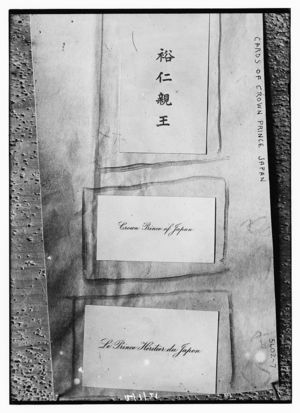 裕仁親王
CARDS OF CROWN PRINCE JAPAN
Crown Prince of Japan
Le Prince Héritier du Japon
5602-7